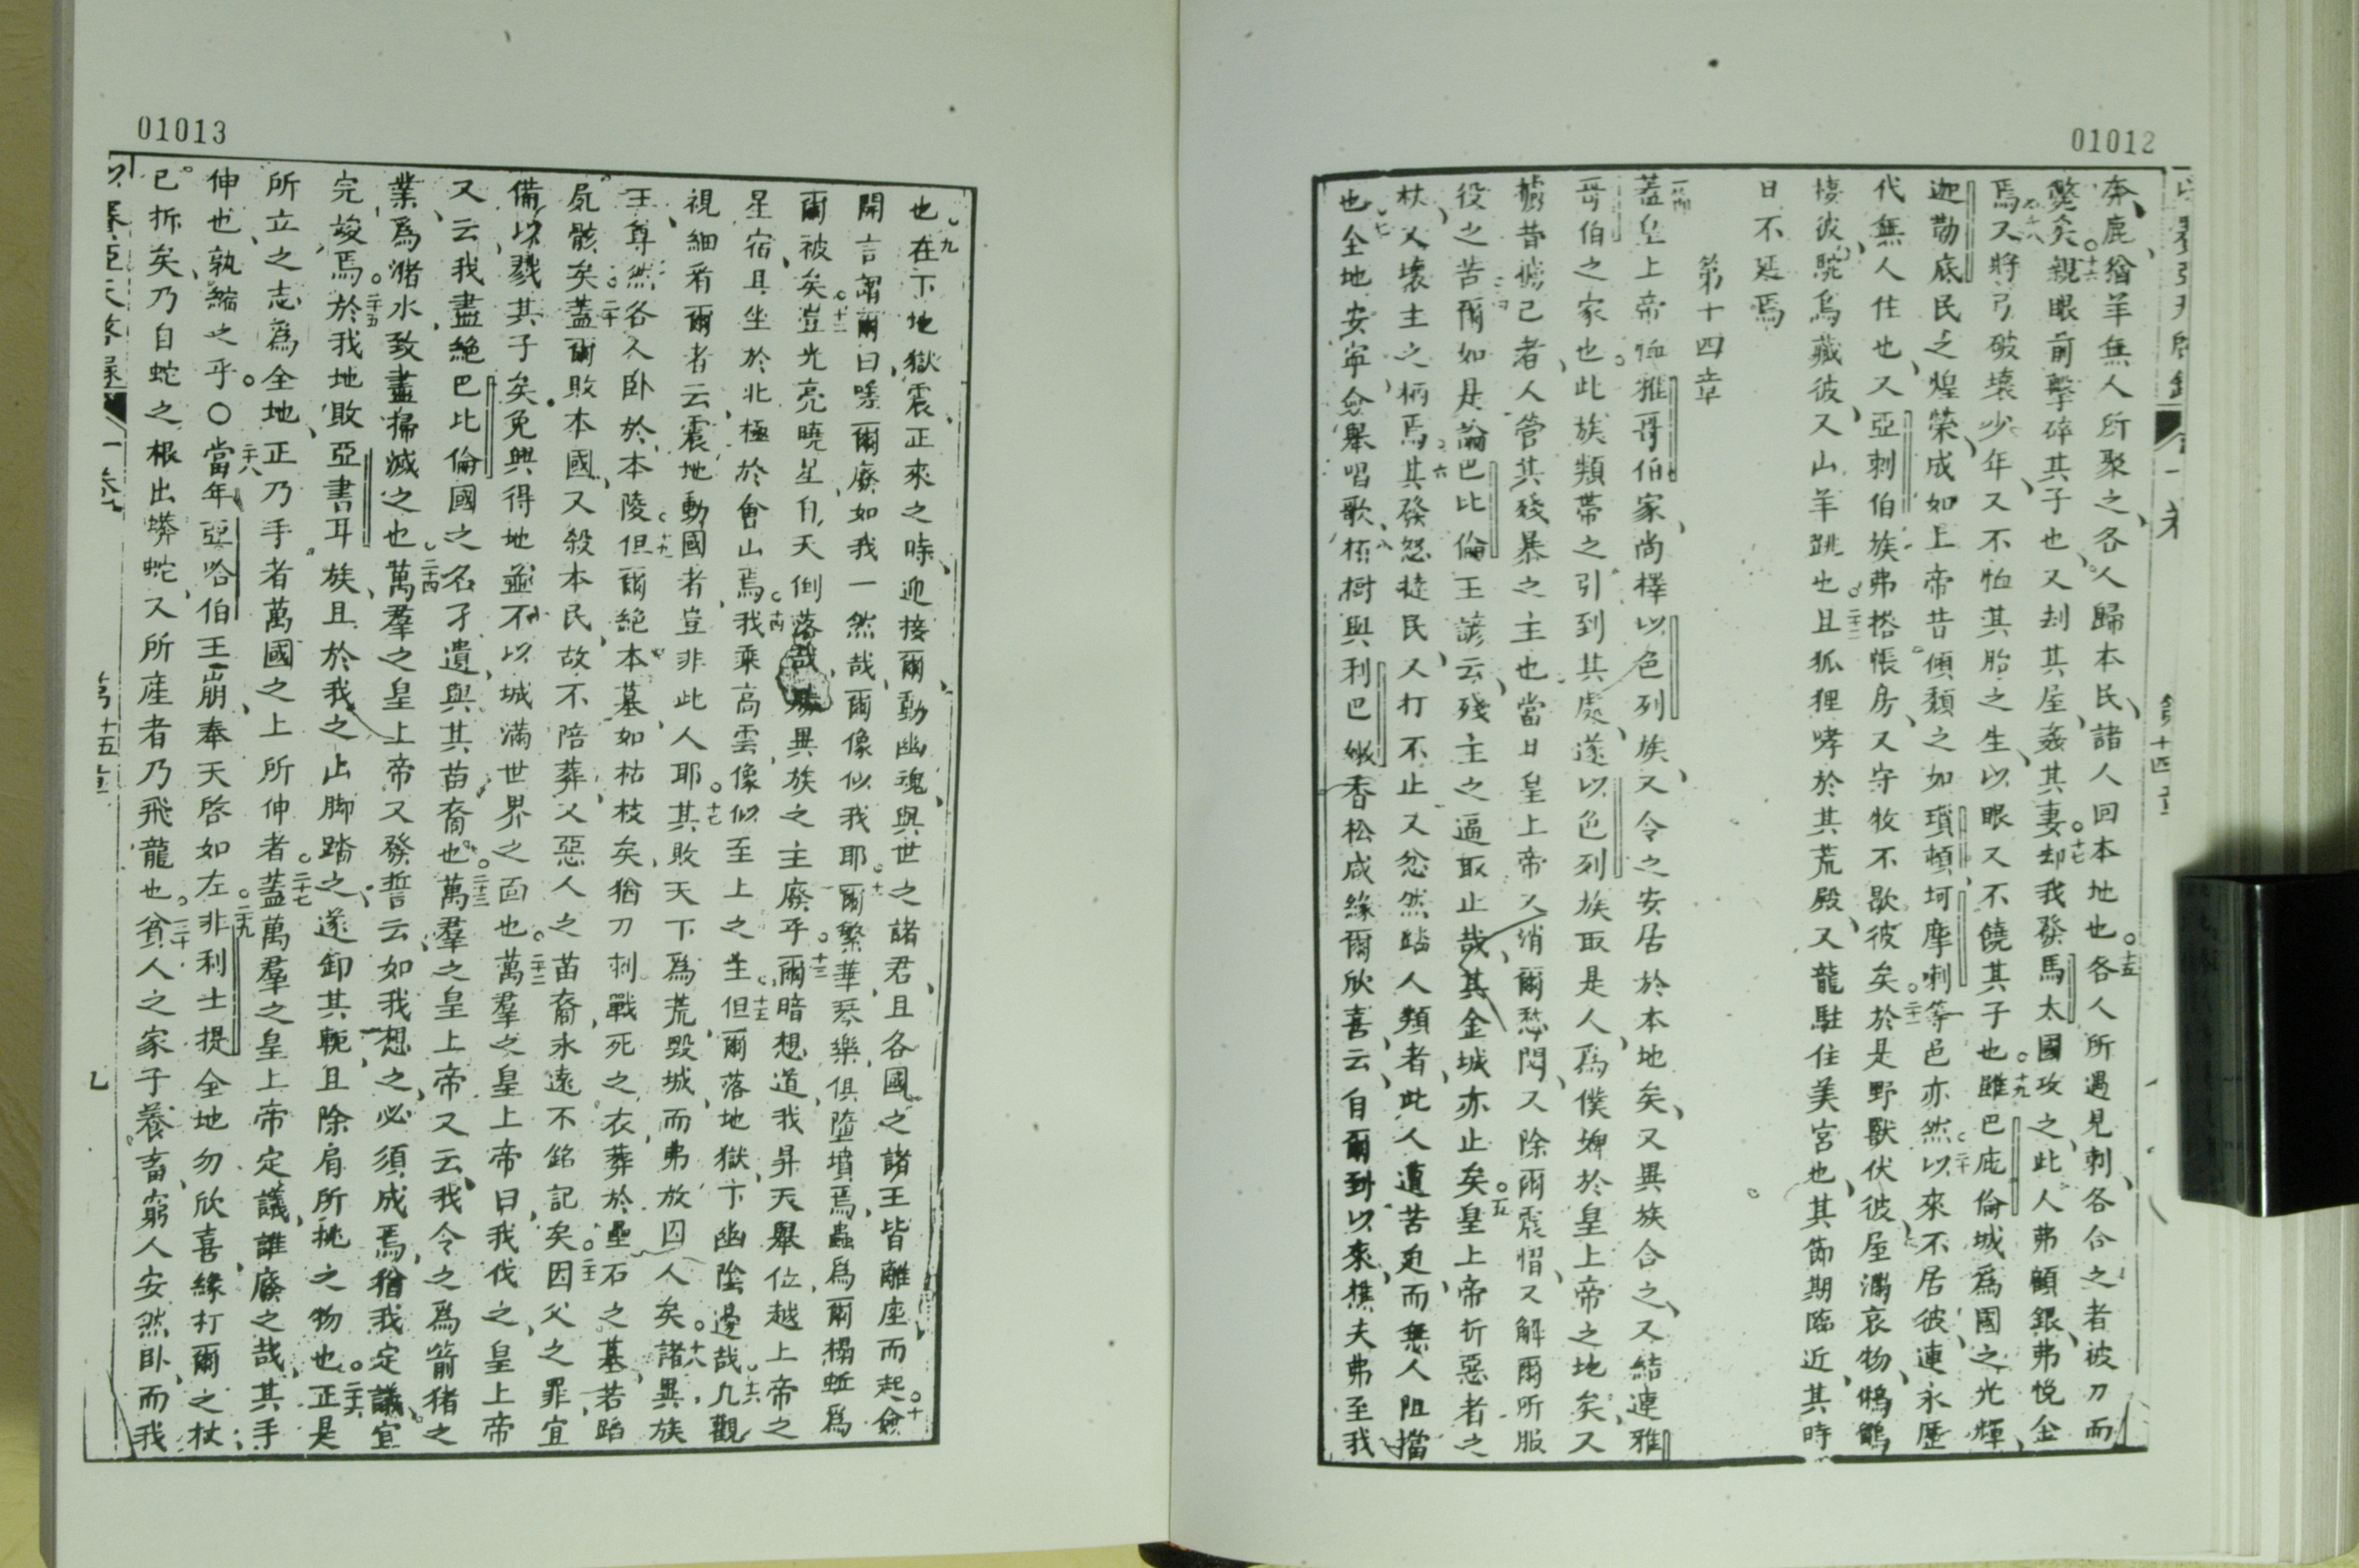 01012
奔鹿猶羊無人所聚之各人歸本民諸人回本地也○十五各人所遇見刺各合之者被刀而
斃矣○十六親眼前擊碎其子也又刦其屋姦其妻○十七却我發馬太國攻之此人弗顧銀弗悅金
焉○十八又將弓破壞少年又不恤其胎之生以眼又不饒其子也○十九雖巴庇倫城為國之光輝
迦勒底民之煌榮成如上帝昔傾頹之如瑣頓坷摩喇等邑亦然○二十以來不居彼連永歷
代無人住也又亞刺伯族弗搭帳房又守牧不歇彼矣○二十一於是野獸伏彼屋滿哀物鵂鶹
棲彼鴕鳥藏彼又山羊跳也○二十二且狐狸哮於其荒殿又龍駐住美宮也其節期臨近其時
日不延焉
第十四章
蓋皇上帝恤雅哥伯家尚擇以色列族又令之安居於本地矣又異族合之又結連雅
哥伯之家也此族類帶之引到其處遂以色列族取是人為僕婢於皇上帝之地矣又
擄昔擄己者人管其殘暴之主也當日皇上帝又消爾愁悶又除爾震慴又解爾所服
役之苦爾如是論巴比倫王諺云殘主之逼取止哉其金城亦止矣○五皇上帝折惡者之
杖又壞主之柄焉○六其發怒撻民又打不止又忿然跕人類者此人遭苦迫而無人阻擋
也○七全地安寧僉舉唱歌○八栢樹與利巴嫩香松咸緣爾欣喜云自爾到以來樵夫弗至我
第十四章
01013
也○九在下地獄震正來之時迎接爾動幽魂與世之諸君且各國之諸王皆離座而起○十僉
開言謂爾曰嗟爾廢如我一然哉爾像似我耶○十一爾繁華琴樂俱墮墳焉蟲為爾榻蚯為
爾被矣○十二豈光亮曉星自天倒落哉勝異族之主廢乎○十三爾暗想道我昇天舉位越上帝之
星宿且坐於北極於會山焉○十四我乘高雲像似至上之主○十五但爾落地獄下幽陰邊哉○十六凡觀
視細看爾者云震地動國者豈非此人耶○十七其敗天下為荒毀城而弗放囚人矣○十八諸異族
王尊然各人卧於本陵○十九但爾絕本墓如枯枝矣猶刀刺戰死之衣葬於壘石之墓若蹈
屍骸矣○二十蓋爾敗本國又殺本民故不陪葬又惡人之苗裔永遠不銘記矣○二十一因父之罪宜
備以戮其子矣免興得地並不以城滿世界之面也○二十二萬羣之皇上帝曰我伐之皇上帝
又云我盡絕巴比倫國之名孑遺與其苗裔也○二十三萬羣之皇上帝又云我令之為箭豬之
業為瀦水致盡掃滅之也○二十四萬羣之皇上帝又發誓云如我想之必須成焉猶我定議宜
完竣焉○二十五於我地敗亞書耳族且於我之山脚踏之遂卸其軛且除肩所挑之物也○二十六正是
所立之志為全地正乃手者萬國之上所伸者○二十七蓋萬羣之皇上帝定議誰廢之哉其手
伸也孰縮之乎○○二十八當年亞哈伯王崩奉天啓如左○二十九非利士提全地勿欣喜緣打爾之杖
已折矣乃自蛇之根出蟒蛇又所產者乃飛龍也○三十貧人之家子養畜窮人安然卧而我
第十五章